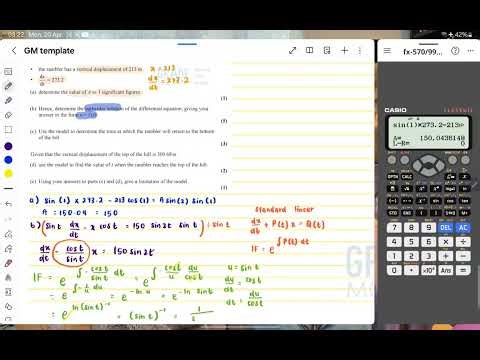 09:22 Mon, 20 Apr
GM template
fx-570/99...
• the rambler has a vertical displacement of 213 m
x = 213
• dx/dt = 273.2
dx/dt = 273.2
(a) determine the value of A to 3 significant figures.
(1)
(b) Hence, determine the particular solution of the differential equation, giving your
answer in the form x = f(t)
(5)
(c) Use the model to determine the time at which the rambler will return to the bottom
of the hill.
Given that the vertical displacement of the top of the hill is
(d) use the model to find the value of t when the rambler reaches the top of the hill.
(e) Using your answer to parts (c) and (d), give a limitation of the model.
a) sin (1) × 273.2 - 213 cos (1) = A sin(2) sin(1)
A = 150.04 = 150
b) (sin t dx/dt - x cos t = 150 sin 2t sin t) ÷ sin t
dx/dt - cos t/sin t x = 150 sin 2t
standard linear
dx/dt + P(t) x = Q(t)
IF = e^∫P(t) dt
IF = e^∫ - cos t/sin t dt = e^∫ - cos t/u du/cos t
u = sin t
du/dt = cos t
dt = du/cos t
= e^∫ - 1/u du = e^-ln u = e^-ln sin t
= e^ln (sin t)^-1 = (sin t)^-1 = 1/s
CASIO
sin(1)×273.2-213×
A= 150.0438149
L-R= 0
7 8 9 DEL AC
4 5 6 × ÷
1 2 3 + -
0 . ×10ˣ Ans =